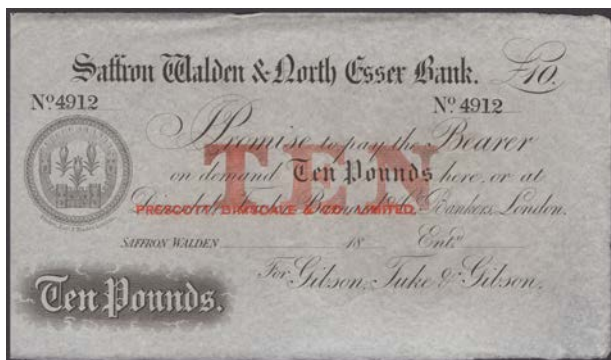 Saffron Walden & North Essex Bank. £10.
Nº 4912 Nº 4912
I Promise to pay the Bearer
on demand Ten Pounds here, or at
TEN
Bankers, London.
PRESCOTT, DIMSDALE & CO. LIMITED.
SAFFRON WALDEN 18 Entd
For Gibson, Tuke & Gibson.
Ten Pounds.